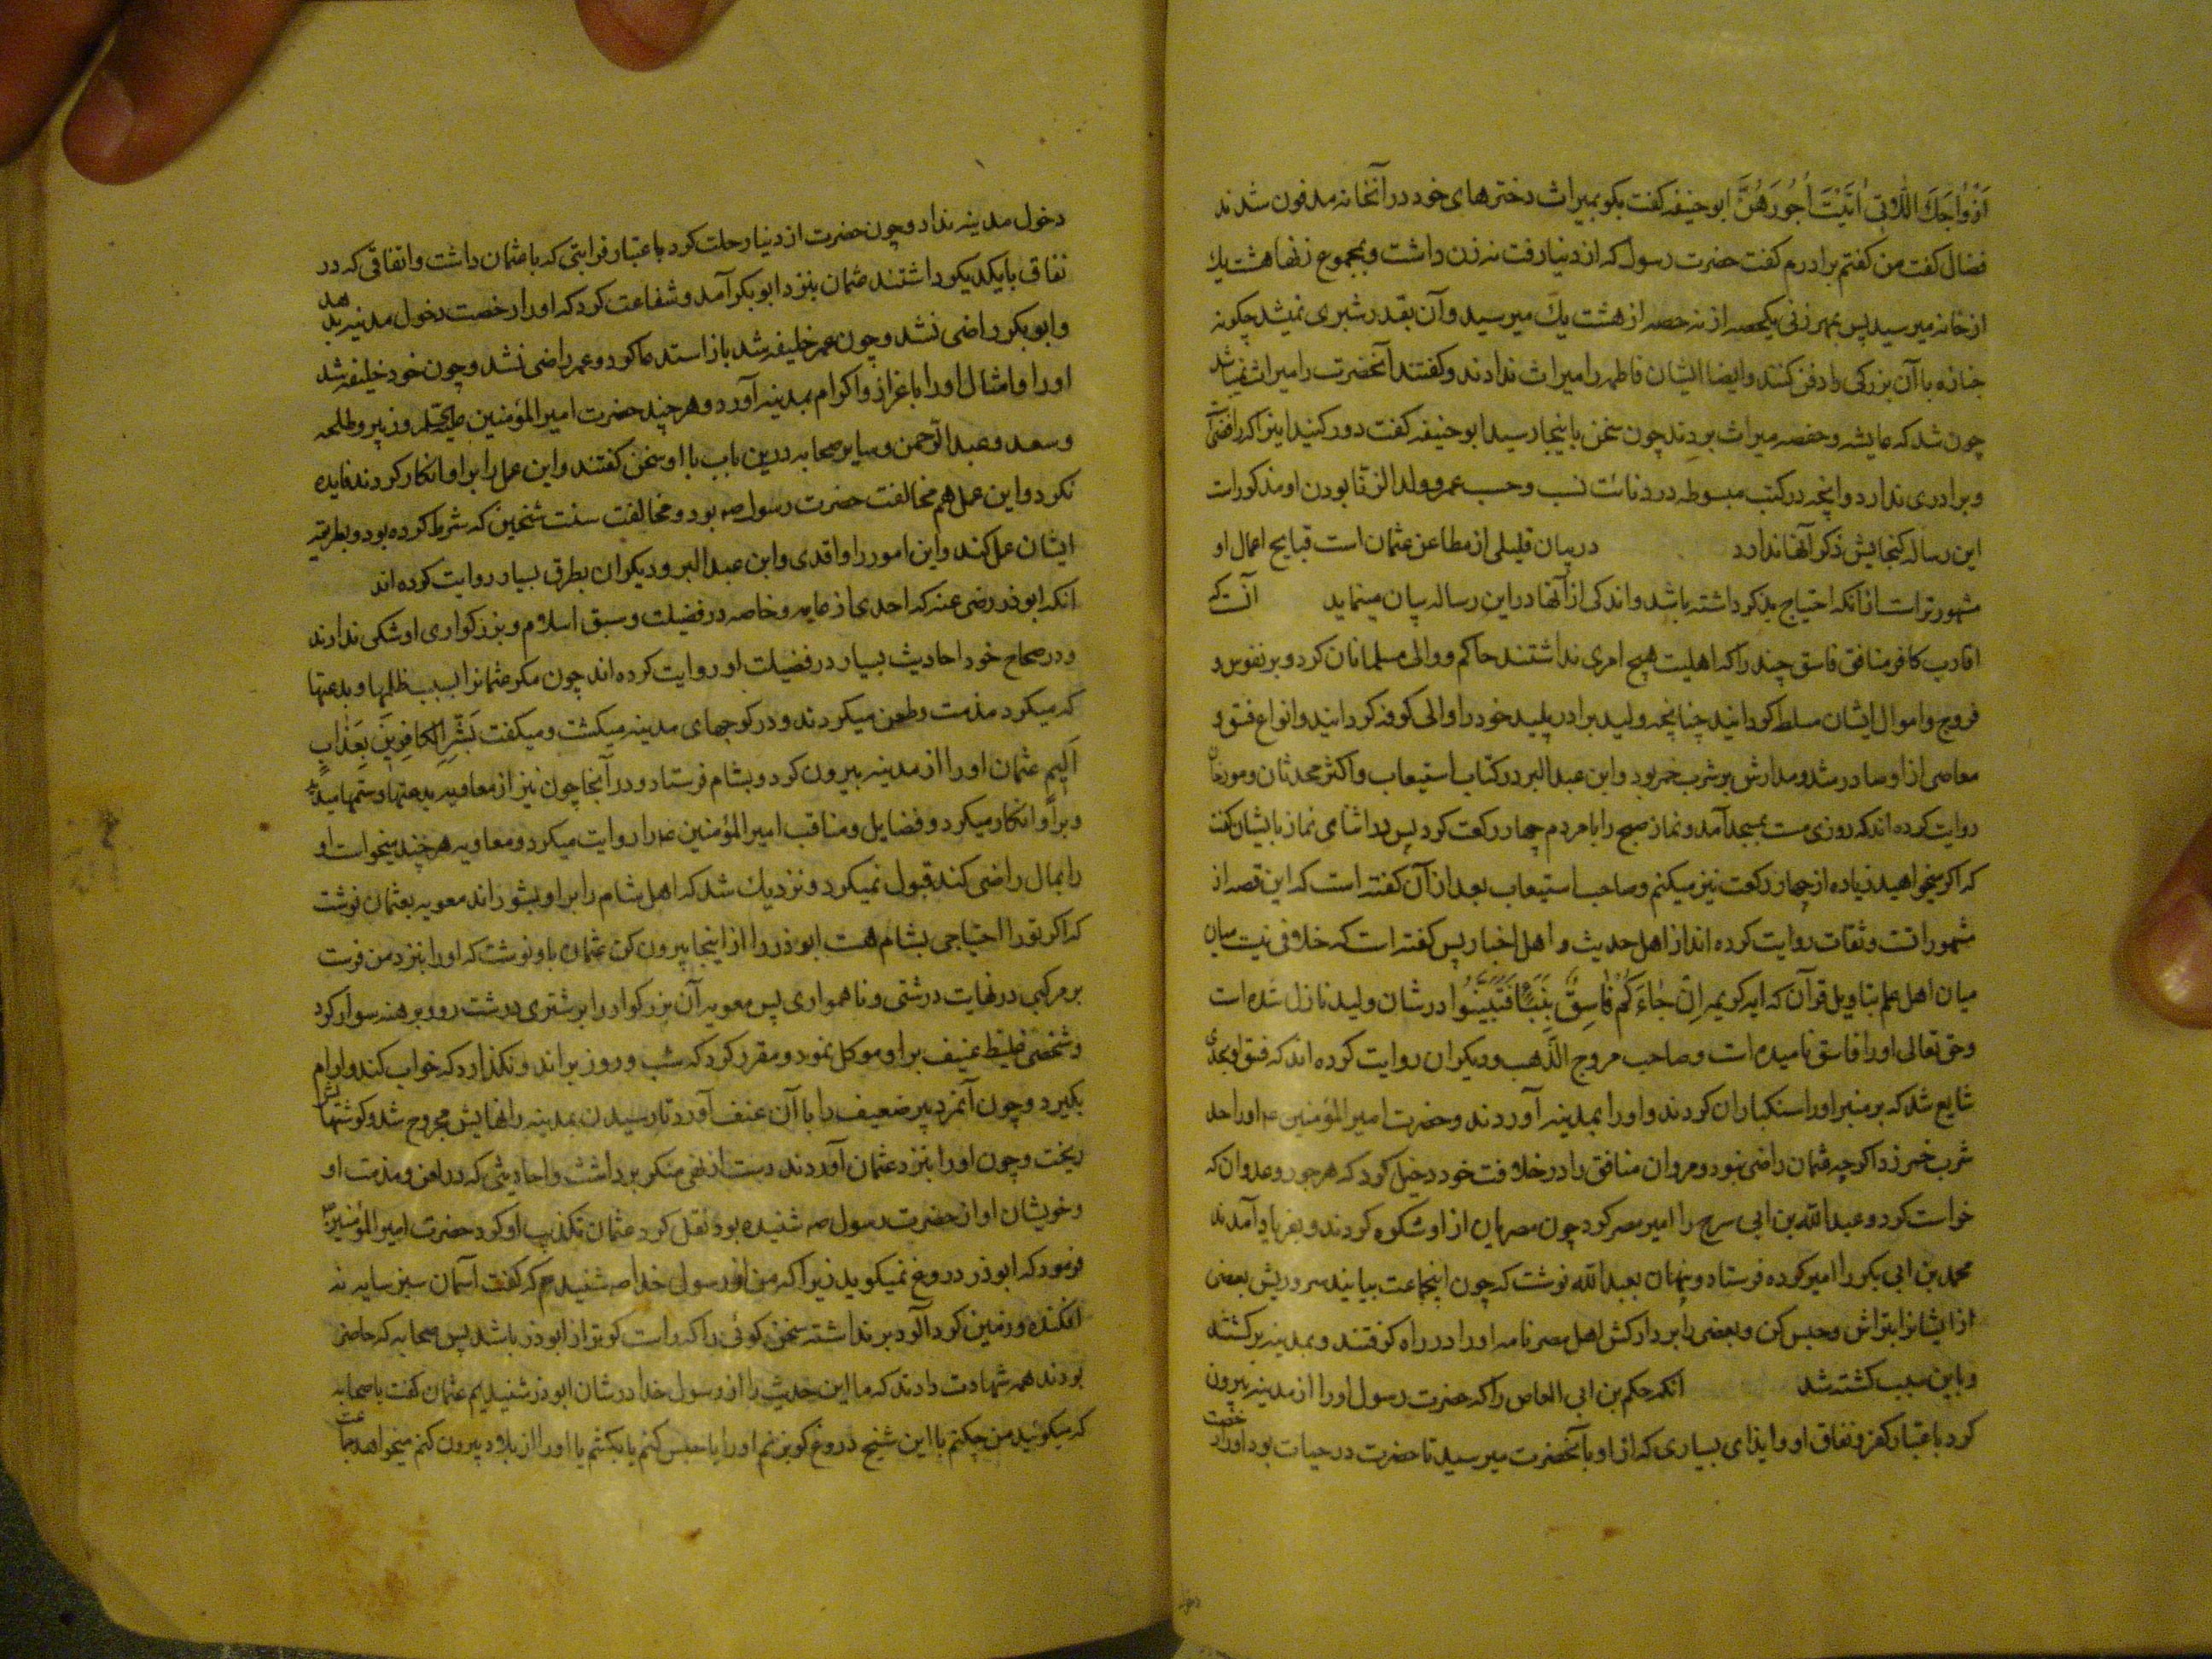 اَزْوٰاجَكَ اللّٰاتِی اٰتَیْتَ اُجُورَهُنَّ ابو حنیفه کفت بکو بمیراث دخترهای خود در آنخانه مدفون شدند
فضال کفت من کفتم برادرم کفت حضرت رسول که از دنیا رفت نه زن داشت و بمجموع زنها هشت یك
از خانه میرسید پس بهر زنی یکحصه از نه حصه از هشت یك میرسید و آن بقدر شبری نمیشد چکونه
جنازه باآن بزرکی را دفن کنند و ایضا ایشان فاطمه را میراث ندادند و کفتند آنحضرت را میراث نمیباشد
چون شد که عایشه و حفصه میراث بردند چون سخن باینجا رسید ابو حنیفه کفت دور کنید اینرا که رافضی
و برادری ندارد و اپنچه در کتب مبسوطه در دنائت نسب و حسب عمر و ولد الزنا بودن او مذکور است
این رساله کنجایش ذکر آنها ندارد در بیان قلیلی از مطاعن عثمان است قبایح اعمال او
مشهورتر است از آنکه احتیاج بذکر داشته باشد و اندکی از آنها در این رساله بیان مینماید آنست که
اقارب کافر منافق فاسق چند را که اهلیت هیچ امری نداشتند حاکم و والی مسلمانان کرد و بر نفوس و
فروج و اموال ایشان مسلط کردانید چنانچه ولید برادر پلید خود را والی کوفه کردانید و انواع فسق و
معاصی از او صادر شد و مدارش بر شرب خمر بود و ابن عبد البر در کتاب استیعاب و اکثر محدثان و مورخان
روایت کرده اند که روزی مست بمسجد آمد و نماز صبح را با مردم چهار رکعت کرد پس در اثنای نماز بایشان کفت
که اکر میخواهید زیاده از چهار رکعت نیز میکنم و صاحب استیعاب بعد از آن کفته است که این قصه از
مشهوراتست و ثقات روایت کرده اند از اهل حدیث و اهل اخبار پس کفته است که خلافی نیست میان
میان اهل علم بتاویل قرآن که ایه کریمه اِنْ جٰاءَكُمْ فٰاسِقٌ بِنَبَاءٍ فَتَبَیَّنُوا در شان ولید نازل شده است
و حق تعالی او را فاسق نامیده است و صاحب مروج الذهب و دیکران روایت کرده اند که فسق او بحدی
شایع شد که بر منبر او را سنکباران کردند و او را بمدینه آوردند و حضرت امیر المؤمنین ع او را حد
شرب خمر زد اکرچه عثمان راضی نبود و مروان منافق را در خلافت خود دخیل کرد که هر جور و عدوان که
خواست کرد و عبد الله بن ابی سرح را امیر مصر کرد چون مصریان از او شکوه کردند و بفریاد آمدند
محمد بن ابی بکر را امیر کرده فرستاد و پنهان بعبد الله نوشت که چون اینجماعت بیایند سر و ریش بعضی
از ایشانرا بتراش و حبس کن و بعضی را بر دار کش اهل مصر نامه او را در راه کرفتند و بمدینه برکشتند
و باین سبب کشته شد آنکه حکم بن ابی العاص را که حضرت رسول او را از مدینه بیرون
کرد باعتبار کفر و نفاق او و ایذای بسیاری که از او بآنحضرت میرسید تا حضرت در حیات بود او را رخصت
دخول مدینه نداد و چون حضرت از دنیا رحلت کرد باعتبار قرابتی که با عثمان داشت و اتفاقی که در
نفاق با یکدیکر داشتند عثمان بنزد ابو بکر آمد و شفاعت کرد که او را رخصت دخول مدینه بدهد
و ابو بکر راضی نشد و چون عمر خلیفه شد باز استدعا کرد و عمر راضی نشد و چون خود خلیفه شد
او را و امثال او را باعزاز و اکرام بمدینه آورد و هر چند حضرت امیر المؤمنین و زبیر و طلحه
و سعد و عبد الرحمن و سایر صحابه درین باب با او سخن کفتند و این عمل را بر او انکار کردند فایده
نکرد و این عمل هم مخالفت حضرت رسول صه بود و مخالفت سنت شیخین که شرط کرده بود و بطریقه
ایشان عمل کند و این امور را واقدی و ابن عبد البر و دیکران بطرق بسیار روایت کرده اند
انکه ابوذر رضی عنه که احدی از عامه و خاصه در فضیلت و سبق اسلام و بزرکواری او شکی ندارند
و در صحاح خود احادیث بسیار در فضیلت او روایت کرده اند چون مکرر عثمانرا بسبب ظلمها و بدعتها
که میکرد مذمت و طعن میکردند و در کوچهای مدینه میکشت و میکفت بَشِّرِ الْكٰافِرِینَ بِعَذٰابٍ
اَلیمٍ عثمان او را از مدینه بیرون کرد و بشام فرستاد و در آنجا چون نیز از معاویه بدعتها و ستمها میدید
و بر او انکار میکرد و فضایل و مناقب امیر المؤمنین ع را روایت میکرد و معاویه هر چند میخواست او
را بمال راضی کند قبول نمیکرد و نزدیك شد که اهل شام را بر او بشوراند معویه بعثمان نوشت
که اکر تو را احتیاجی بشام هست ابوذر را از اینجا بیرون کن عثمان باو نوشت که او را بنزد من فرست
بر مرکبی در نهایت درشتی و ناهمواری پس معویه آن بزرکوار را بر شتری درشت رو و برهنه سوار کرد
و شخصی غلیظ عنیف بر او موکل نمود و مقرر کرد که شب و روز براند و نکذارد که خواب کند و آرام
بکیرد و چون آنمرد پیر ضعیف را با آن عنف آورد تا رسیدن بمدینه رانهایش مجروح شد و کوشتهاش
ریخت و چون او را بنزد عثمان آوردند دست از نهی منکر بر نداشت و احادیثی که در لعن و مذمت او
و خویشان او از حضرت رسول صه شنیده بود نقل کرد عثمان تکذیب او کرد حضرت امیر المؤمنین
فرمود که ابوذر دروغ نمیکوید زیرا که من از رسول خدا صه شنیدم که کفت آسمان سبز سایه نه
افکنده و زمین کرد آلود بر نداشته سخن کوئی را که راست کوتر از ابوذر باشد پس صحابه که حاضر
بودند همه شهادت دادند که ما این حدیث را از رسول خدا در شان ابوذر شنیدیم عثمان کفت با صحابه
که میکوئید من چکنم با این شیخ دروغ کو بزنم او را یا حبس کنم یا بکشم یا او را از بلاد بیرون کنم میخواهد جماعت